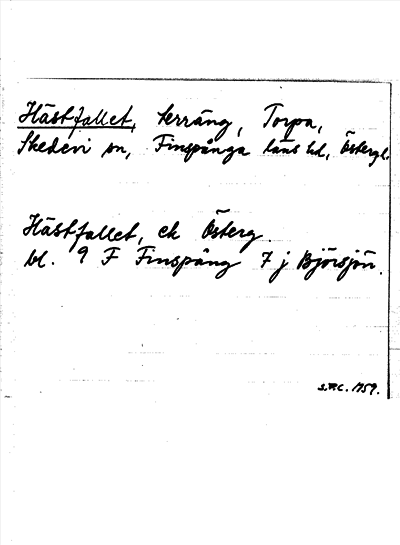 Hästfallet, terräng, Torpa,
Skedevi sn, Finspånga läns hd, Östergl.
Hästfallet, ek Österg.
bl. 9 F Finspång 7 j Björsjön.
1959.